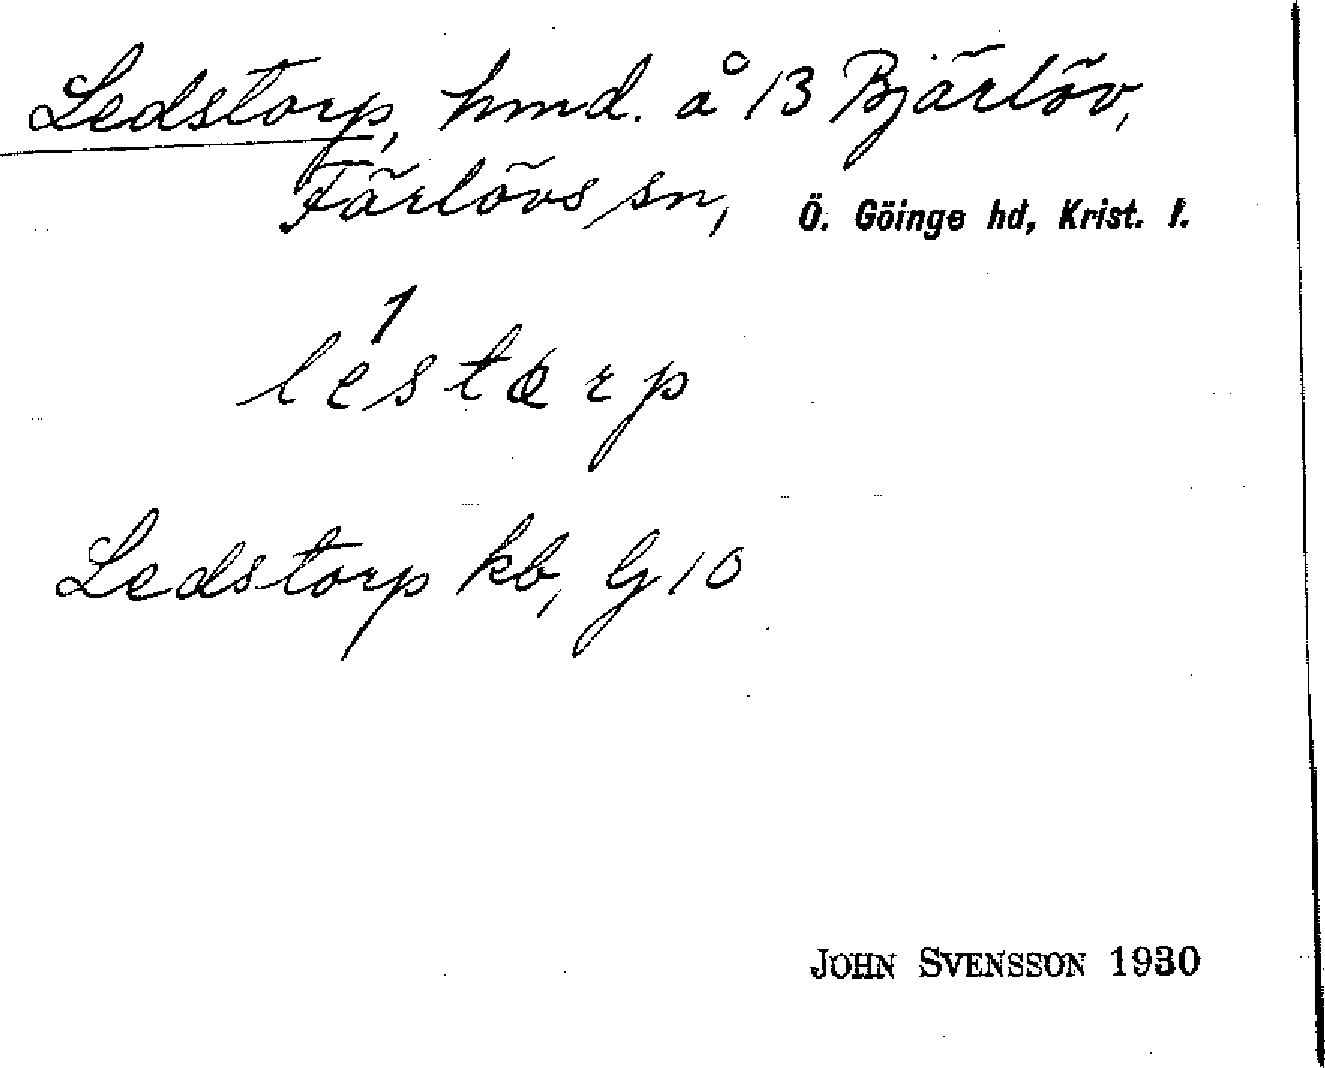 Ledstorp, hmd. å 13 Bjärlöv,
Färlövs sn, Ö. Göinge hd, Krist. l.
1
lestærp
Ledstorp kb, G 10
JOHN SVENSSON 1930